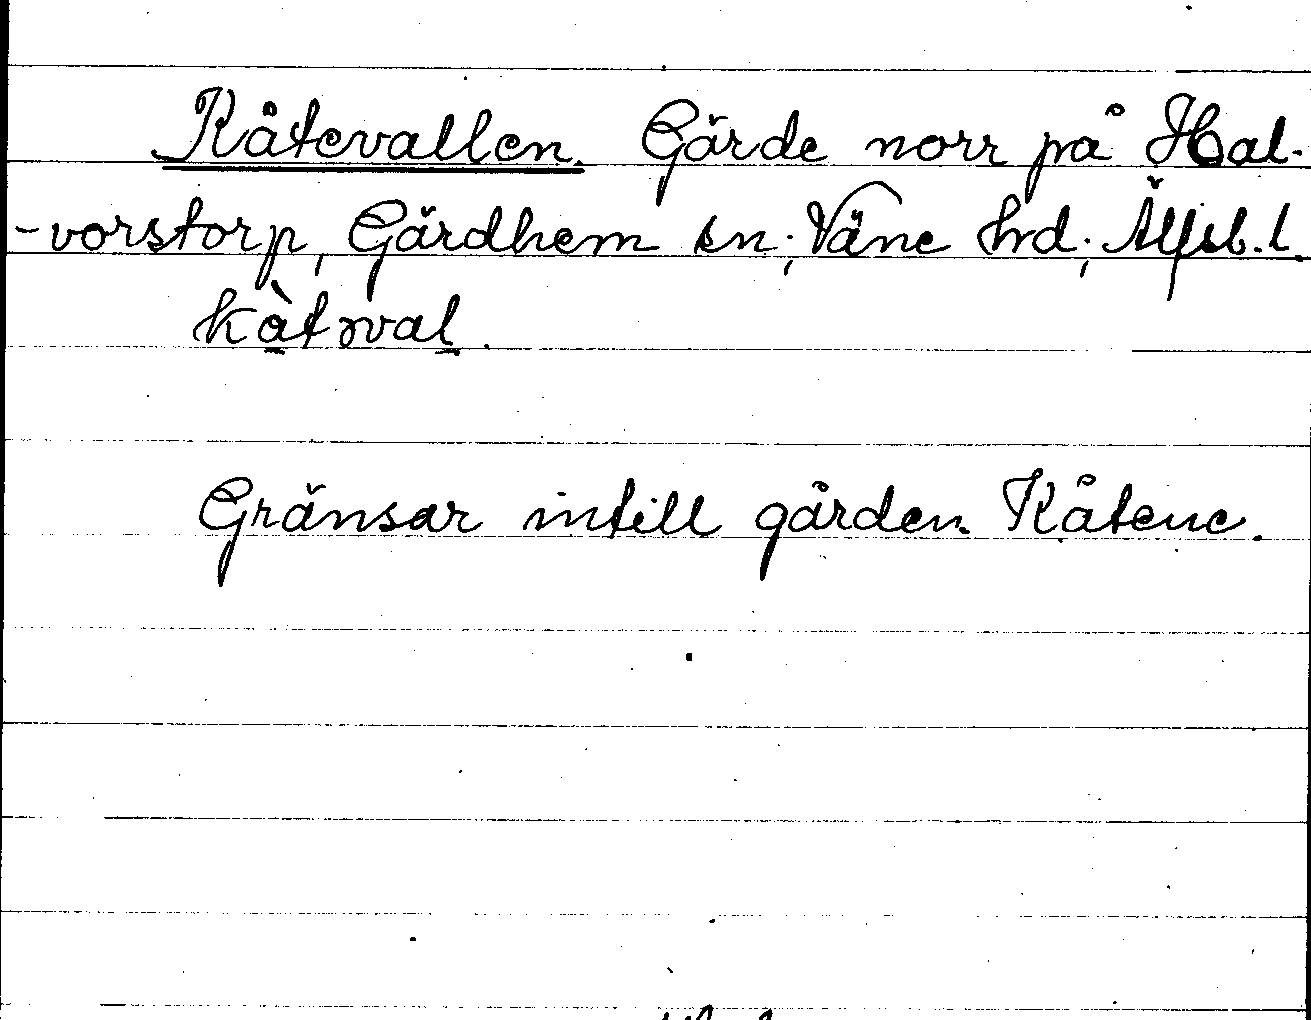 Kåtevallen. Gärde norr på Hal-
-vorstorp, Gärdhem sn; Väne hrd; Älfsb. l.
kàtəval.
Gränsar intill gården Kåtene.